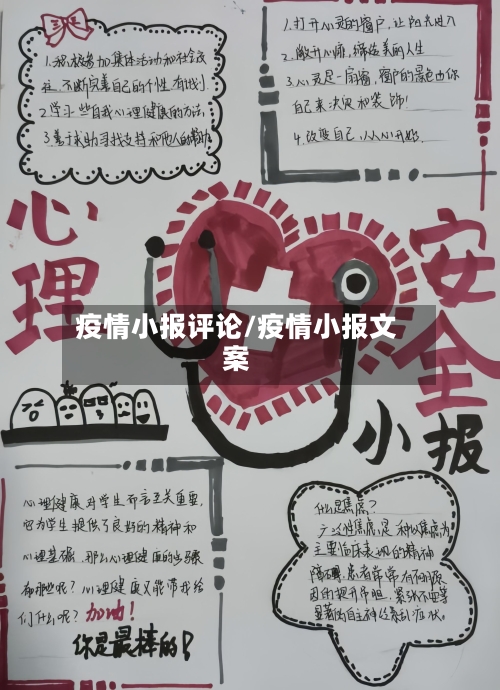 1.积极参加集体活动和社会交
往,不断完善自己的个性,有计划
2.学习一些自我心理健康的方法
3.善于求助寻找支持和他人的帮助
1.打开心灵的窗户,让阳光进入
2.敞开心扉,缔造美丽人生
3.心灵是一扇窗,窗户的景色由你
自己来决定和装饰!
4.改变自己,从从心开始.
心理
安全
小报
疫情小报评论/疫情小报文
案
心理健康对学生而言至关重要,
它为学生提供了良好的精神和
心理基础,那么心理健康的步骤
有哪些呢?心理健康又能带我给
们什么呢?加油!
你是最棒的!
什么是焦虑?
广泛性焦虑是一种以焦虑为
主要临床表现的精神
障碍,患者常常有不明原
因的提心吊胆,紧张不安等
显著的自主神经紊乱症状。